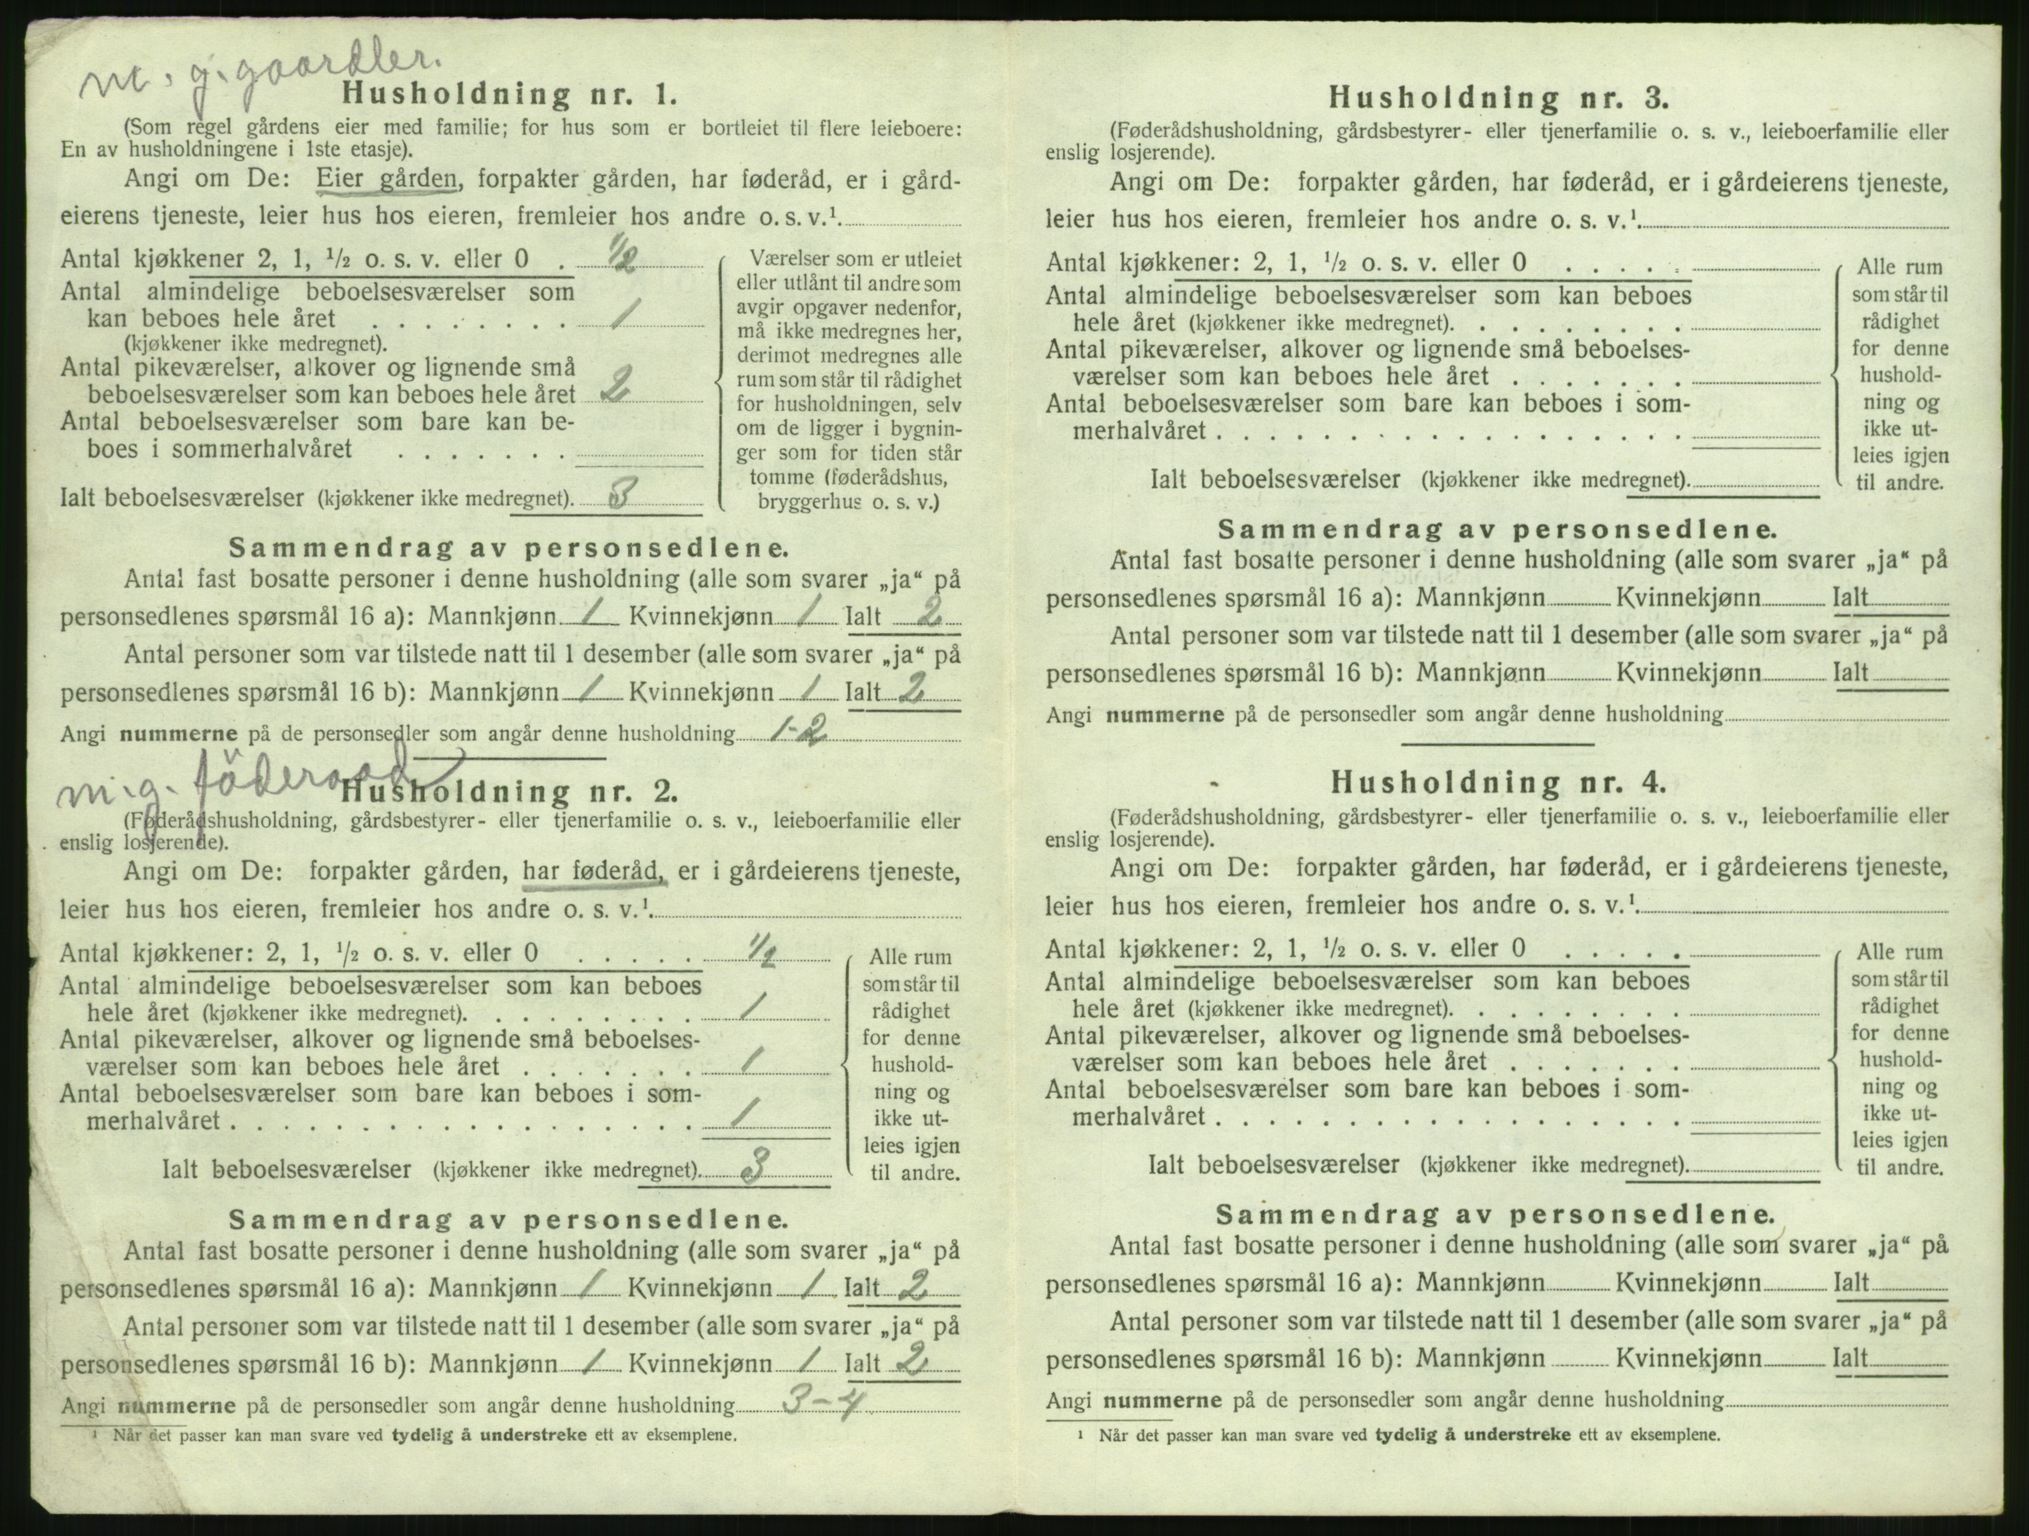 m. g. gaardler.
Husholdning nr. 1.
(Som regel gårdens eier med familie; for hus som er bortleiet til flere leieboere:
En av husholdningene i 1ste etasje).
Angi om De: Eier gården, forpakter gården, har føderåd, er i gård-
eierens tjeneste, leier hus hos eieren, fremleier hos andre o. s. v.¹.
Antal kjøkkener 2, 1, ½ o. s. v. eller 0 . ½
Antal almindelige beboelsesværelser som
kan beboes hele året . . . . . . . . 1
(kjøkkener ikke medregnet).
Antal pikeværelser, alkover og lignende små
beboelsesværelser som kan beboes hele året 2
Antal beboelsesværelser som bare kan be-
boes i sommerhalvåret . . . . . . .
Ialt beboelsesværelser (kjøkkener ikke medregnet). 3
Værelser som er utleiet
eller utlånt til andre som
avgir opgaver nedenfor,
må ikke medregnes her,
derimot medregnes alle
rum som står til rådighet
for husholdningen, selv
om de ligger i bygnin-
ger som for tiden står
tomme (føderådshus,
bryggerhus o. s. v.)
Sammendrag av personsedlene.
Antal fast bosatte personer i denne husholdning (alle som svarer „ja“ på
personsedlenes spørsmål 16 a): Mannkjønn 1 Kvinnekjønn 1 Ialt 2
Antal personer som var tilstede natt til 1 desember (alle som svarer „ja“ på
personsedlenes spørsmål 16 b): Mannkjønn 1 Kvinnekjønn 1 Ialt 2
Angi nummerne på de personsedler som angår denne husholdning 1-2
m. g. föderaad
Husholdning nr. 2.
(Føderådshusholdning, gårdsbestyrer- eller tjenerfamilie o. s. v., leieboerfamilie eller
enslig losjerende).
Angi om De: forpakter gården, har føderåd, er i gårdeierens tjeneste,
leier hus hos eieren, fremleier hos andre o. s. v.¹.
Antal kjøkkener: 2, 1, ½ o. s. v. eller 0 . . . . . ½
Antal almindelige beboelsesværelser som kan beboes
hele året (kjøkkener ikke medregnet). . . . . . . . . 1
Antal pikeværelser, alkover og lignende små beboelses-
værelser som kan beboes hele året . . . . . . . 1
Antal beboelsesværelser som bare kan beboes i som-
merhalvåret . . . . . . . . . . . . . . . . . . 1
Ialt beboelsesværelser (kjøkkener ikke medregnet). 3
Alle rum
som står til
rådighet
for denne
hushold-
ning og
ikke ut-
leies igjen
til andre.
Sammendrag av personsedlene.
Antal fast bosatte personer i denne husholdning (alle som svarer „ja“ på
personsedlenes spørsmål 16 a): Mannkjønn 1 Kvinnekjønn 1 Ialt 2
Antal personer som var tilstede natt til 1 desember (alle som svarer „ja“ på
personsedlenes spørsmål 16 b): Mannkjønn 1 Kvinnekjønn 1 Ialt 2
Angi nummerne på de personsedler som angår denne husholdning 3-4
¹ Når det passer kan man svare ved tydelig å understreke ett av eksemplene.
Husholdning nr. 3.
(Føderådshusholdning, gårdsbestyrer- eller tjenerfamilie o. s. v., leieboerfamilie eller
enslig losjerende).
Angi om De: forpakter gården, har føderåd, er i gårdeierens tjeneste,
leier hus hos eieren, fremleier hos andre o. s. v.¹.
Antal kjøkkener: 2, 1, ½ o. s. v. eller 0 . . . . .
Antal almindelige beboelsesværelser som kan beboes
hele året (kjøkkener ikke medregnet). . . . . . . . .
Antal pikeværelser, alkover og lignende små beboelses-
værelser som kan beboes hele året . . . . . . .
Antal beboelsesværelser som bare kan beboes i som-
merhalvåret . . . . . . . . . . . . . . . . . .
Ialt beboelsesværelser (kjøkkener ikke medregnet).
Alle rum
som står til
rådighet
for denne
hushold-
ning og
ikke ut-
leies igjen
til andre.
Sammendrag av personsedlene.
Antal fast bosatte personer i denne husholdning (alle som svarer „ja“ på
personsedlenes spørsmål 16 a): Mannkjønn Kvinnekjønn Ialt
Antal personer som var tilstede natt til 1 desember (alle som svarer „ja“ på
personsedlenes spørsmål 16 b): Mannkjønn Kvinnekjønn Ialt
Angi nummerne på de personsedler som angår denne husholdning
Husholdning nr. 4.
(Føderådshusholdning, gårdsbestyrer- eller tjenerfamilie o. s. v., leieboerfamilie eller
enslig losjerende).
Angi om De: forpakter gården, har føderåd, er i gårdeierens tjeneste,
leier hus hos eieren, fremleier hos andre o. s. v.¹.
Antal kjøkkener: 2, 1, ½ o. s. v. eller 0 . . . . .
Antal almindelige beboelsesværelser som kan beboes
hele året (kjøkkener ikke medregnet). . . . . . . . .
Antal pikeværelser, alkover og lignende små beboelses-
værelser som kan beboes hele året . . . . . . .
Antal beboelsesværelser som bare kan beboes i som-
merhalvåret . . . . . . . . . . . . . . . . . .
Ialt beboelsesværelser (kjøkkener ikke medregnet).
Alle rum
som står til
rådighet
for denne
hushold-
ning og
ikke ut-
leies igjen
til andre.
Sammendrag av personsedlene.
Antal fast bosatte personer i denne husholdning (alle som svarer „ja“ på
personsedlenes spørsmål 16 a): Mannkjønn Kvinnekjønn Ialt
Antal personer som var tilstede natt til 1 desember (alle som svarer „ja“ på
personsedlenes spørsmål 16 b): Mannkjønn Kvinnekjønn Ialt
Angi nummerne på de personsedler som angår denne husholdning
¹ Når det passer kan man svare ved tydelig å understreke ett av eksemplene.